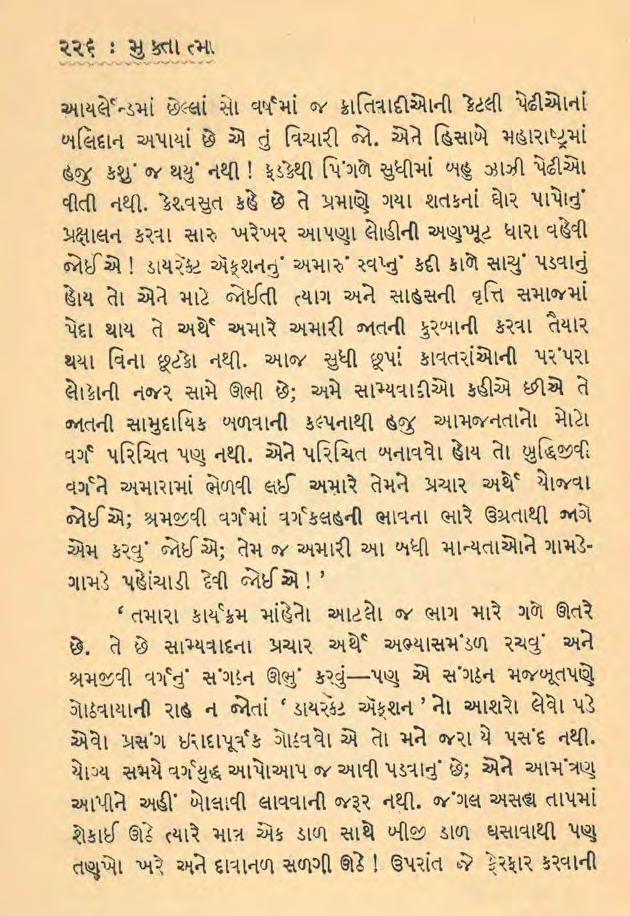 ૨૨૬ : મુક્તાત્મા
આયર્લેન્ડમાં છેલ્લાં સો વર્ષમાં જ ક્રાંતિવાદીઓની કેટલી પેઢીઓનાં
બલિદાન અપાયાં છે એ તું વિચારી જો. એને હિસાબે મહારાષ્ટ્રમાં
હજુ કશું જ થયું નથી ! ફડકેથી પિંગળે સુધીમાં બહુ ઝાઝી પેઢીઓ
વીતી નથી. કેશવસુત કહે છે તે પ્રમાણે ગયા શતકનાં ઘોર પાપોનું
પ્રક્ષાલન કરવા સારુ ખરેખર આપણા લોહીની અણખૂટ ધારા વહેવી
જોઈએ ! ડાયરેક્ટ ઍક્શનનું અમારું સ્વપ્નું કદી કાળે સાચું પડવાનું
હોય તો એને માટે જોઈતી ત્યાગ અને સાહસની વૃત્તિ સમાજમાં
પેદા થાય તે અર્થે અમારે અમારી જાતની કુરબાની કરવા તૈયાર
થયા વિના છૂટકો નથી. આજ સુધી છૂપાં કાવતરાંઓની પરંપરા
લોકોની નજર સામે ઊભી છે; અમે સામ્યવાદીઓ કહીએ છીએ તે
જાતની સામુદાયિક બળવાની કલ્પનાથી હજુ આમજનતાનો મોટો
વર્ગ પરિચિત પણ નથી. એને પરિચિત બનાવવો હોય તો બુદ્ધિજીવી
વર્ગને અમારામાં ભેળવી લઈ અમારે તેમને પ્રચાર અર્થે યોજવા
જોઈએ; શ્રમજીવી વર્ગમાં વર્ગકલહની ભાવના ભારે ઉગ્રતાથી જાગે
એમ કરવું જોઈએ; તેમ જ અમારી આ બધી માન્યતાઓને ગામડે-
ગામડે પહોંચાડી દેવી જોઈએ ! ’
‘ તમારા કાર્યક્રમ માંહેનો આટલો જ ભાગ મારે ગળે ઊતરે
છે. તે છે સામ્યવાદના પ્રચાર અર્થે અભ્યાસમંડળ રચવું અને
શ્રમજીવી વર્ગનું સંગઠન ઊભું કરવું—પણ એ સંગઠન મજબૂતપણે
ગોઠવાયાની રાહ ન જોતાં ‘ ડાયરેક્ટ ઍક્શન ’ નો આશરો લેવો પડે
એવો પ્રસંગ ઇરાદાપૂર્વક ગોઠવવો એ તો મને જરા યે પસંદ નથી.
યોગ્ય સમયે વર્ગયુદ્ધ આપોઆપ જ આવી પડવાનું છે; એને આમંત્રણ
આપીને અહીં બોલાવી લાવવાની જરૂર નથી. જંગલ અસહ્ય તાપમાં
શેકાઈ ઊઠે ત્યારે માત્ર એક ડાળ સાથે બીજી ડાળ ઘસાવાથી પણ
તણખો ખરે અને દાવાનળ સળગી ઊઠે ! ઉપરાંત જે ફેરફાર કરવાની